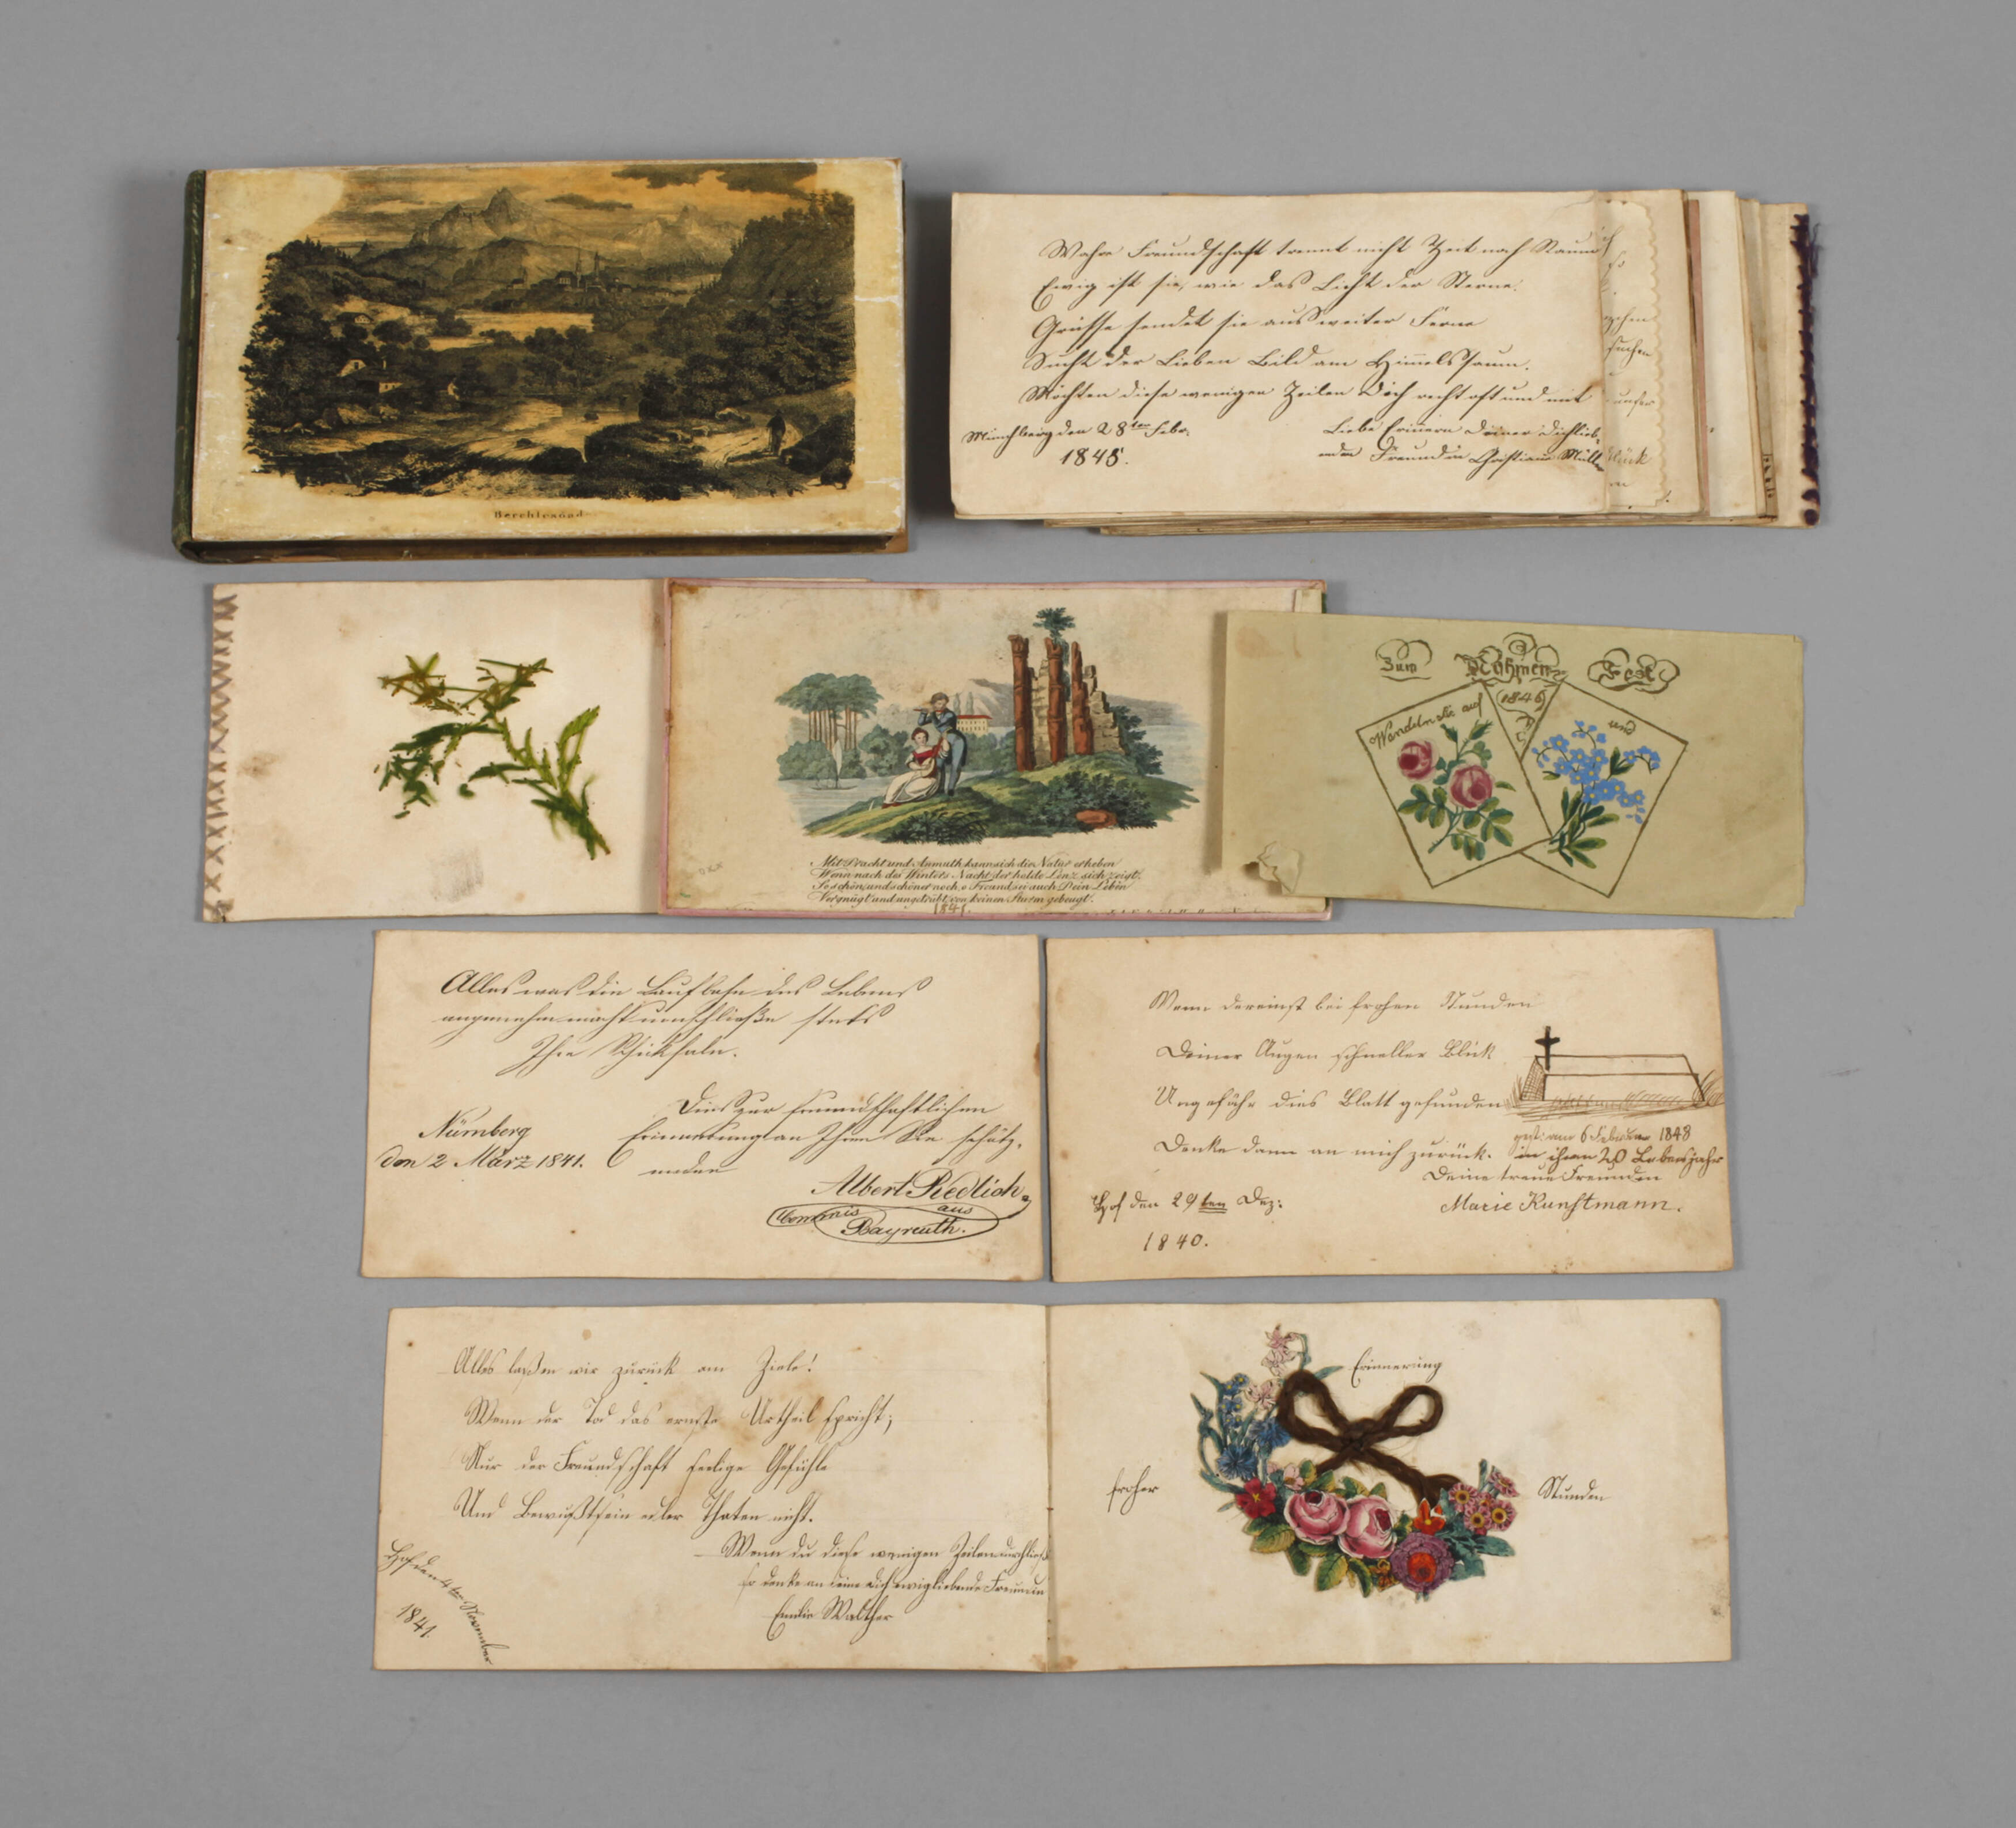 Berchtesgad
Wahre Freundschaft trennt nicht Zeit noch Raum
Ewig ist sie, wie das Licht der Sterne.
Grüsse sendet sie aus weiter Ferne
Sucht der Lieben Bild am Himmelssaum.
Möchten diese wenigen Zeilen Dich recht oft und mit
Liebe erinnern Deiner Dichlieb-
enden Freundin Christiane Müller
Münchberg den 28ten Febr.
1845.
Zum Nahmen Fest
1846
Wandeln sie auf
und
Mit Pracht und Anmuth kann sich die Natur erheben
Wenn nach des Winters Nacht der holde Lenz sich zeigt.
So schön, und schöner noch, o Freund sei auch Dein Leben
Vergnügt und ungetrübt von keinem Sturm gebeugt.
1841.
Alles was die Laufbahn des Lebens
angenehm macht umschließe stets
Ihre Schicksale.
Dies zur freundschaftlichen
Erinnerung an Ihren Sie schätz-
enden
Albert Riedlich
Commis aus
Bayreuth.
Nürnberg
den 2 März 1841.
Wenn dereinst bei frohen Stunden
Deiner Augen schneller Blick
Ungefähr dies Blatt gefunden
Denke dann an mich zurück.
gest: am 6 Februar 1848
in ihren 20 Lebensjahr
Deine treue Freundin
Marie Kunstmann.
Hof den 29ten Dez:
1840.
Alles laßen wir zurück am Ziele!
Wenn der Tod das ernste Urtheil spricht;
Nur der Freundschaft seelige Gefühle
Und Bewußtsein edler Thaten nicht.
Wenn du diese wenigen Zeilen durchließt
so denke an deine dich ewigliebende Freundin
Emilie Walther
Hof den 4ten November
1841.
Erinnerung
froher Stunden